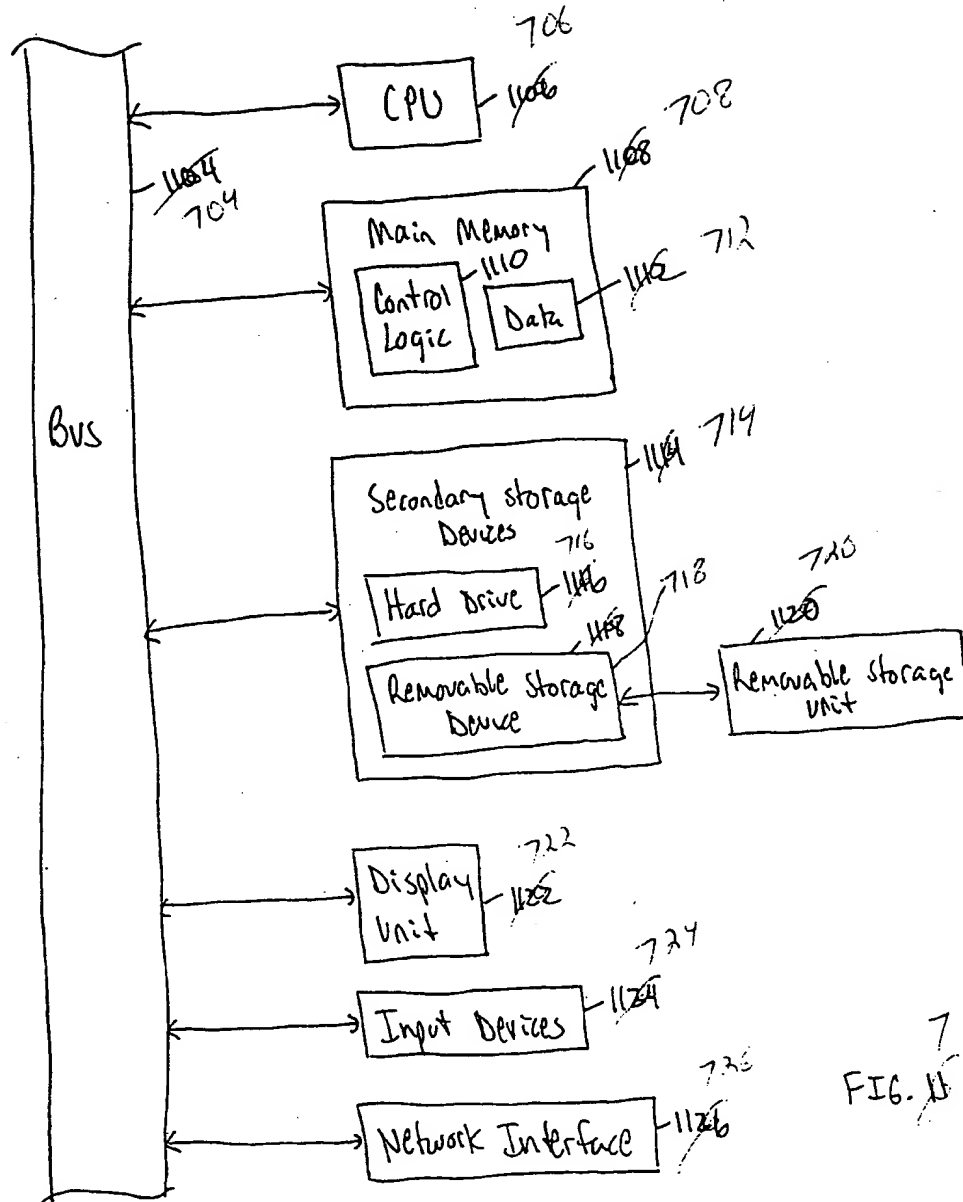 706
CPU
1106
1104
704
708
1108
Main Memory
1110
712
Control
Logic
Data
1112
Bus
714
1114
Secondary Storage
Devices
716
Hard Drive
1116
718
1118
720
1120
Removable Storage
Device
Removable Storage
Unit
722
Display
Unit
1122
724
Input Devices
1124
726
Network Interface
1126
7
FIG. 11